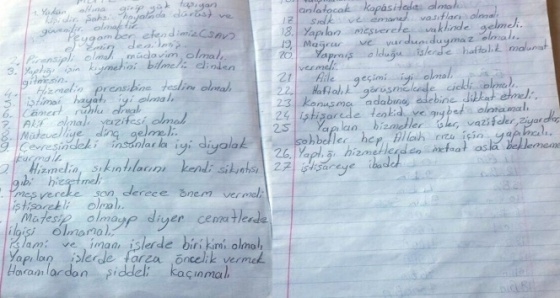 1. Yukarı alttan girip gök tapıgan
hayatında dürüst ve
güvenilir olmalı.
Peygamber efendimize (SAV)
Emin denilmiş.
2. Prensipli olmalı müdavim olmalı.
3. Yaptığı işin kıymetini bilmeli dinden
gitmesin.
4. Hizmetin prensibine teslim olmalı
5. İçtimai hayatı iyi olmalı
6. Cömert ruhlu olmalı
olmalı
Müteveliye dinç gelmeli.
Çevresindeki insanlarla iyi diyalok
kurmalı.
Hizmetin, sıkıntılarını kendi sıkıntısı
gibi hissetmeli
meşverete son derece önem vermeli
istişarekli olmalı.
Matesip olmayıp diyer cematlerde
ilgisi olmamalı.
İslami ve imanı işlerde birikimi olmalı
Yapılan işlerde tarza öncelik vermek
Haramlardan şiddeli kaçınmalı
anlatacak kapasitede olmalı.
17. Sıdk ve emanet vasıtları olmalı
18. Yapılan meşverete vaktinde gelmeli.
19. Mağrur ve vurdumduymaz olmalı.
20 Yapmış olduğu işlerde haftalık malumat
vermeli.
21 Aile geçimi iyi olmalı
22 Haftalık görüşmelerde ciddi olmalı.
23 konuşma adabına edebine dikkat etmeli.
24 İstişarede tenkid ve gıybet olmamalı
25 Yapılan hizmetler işler, vazifeler, ziyaretler
sohbetler hep fillah rıza için yapılmalı.
26. Yaptığı hizmetlerden menfaat asla beklememe
27 istişareye ibadet